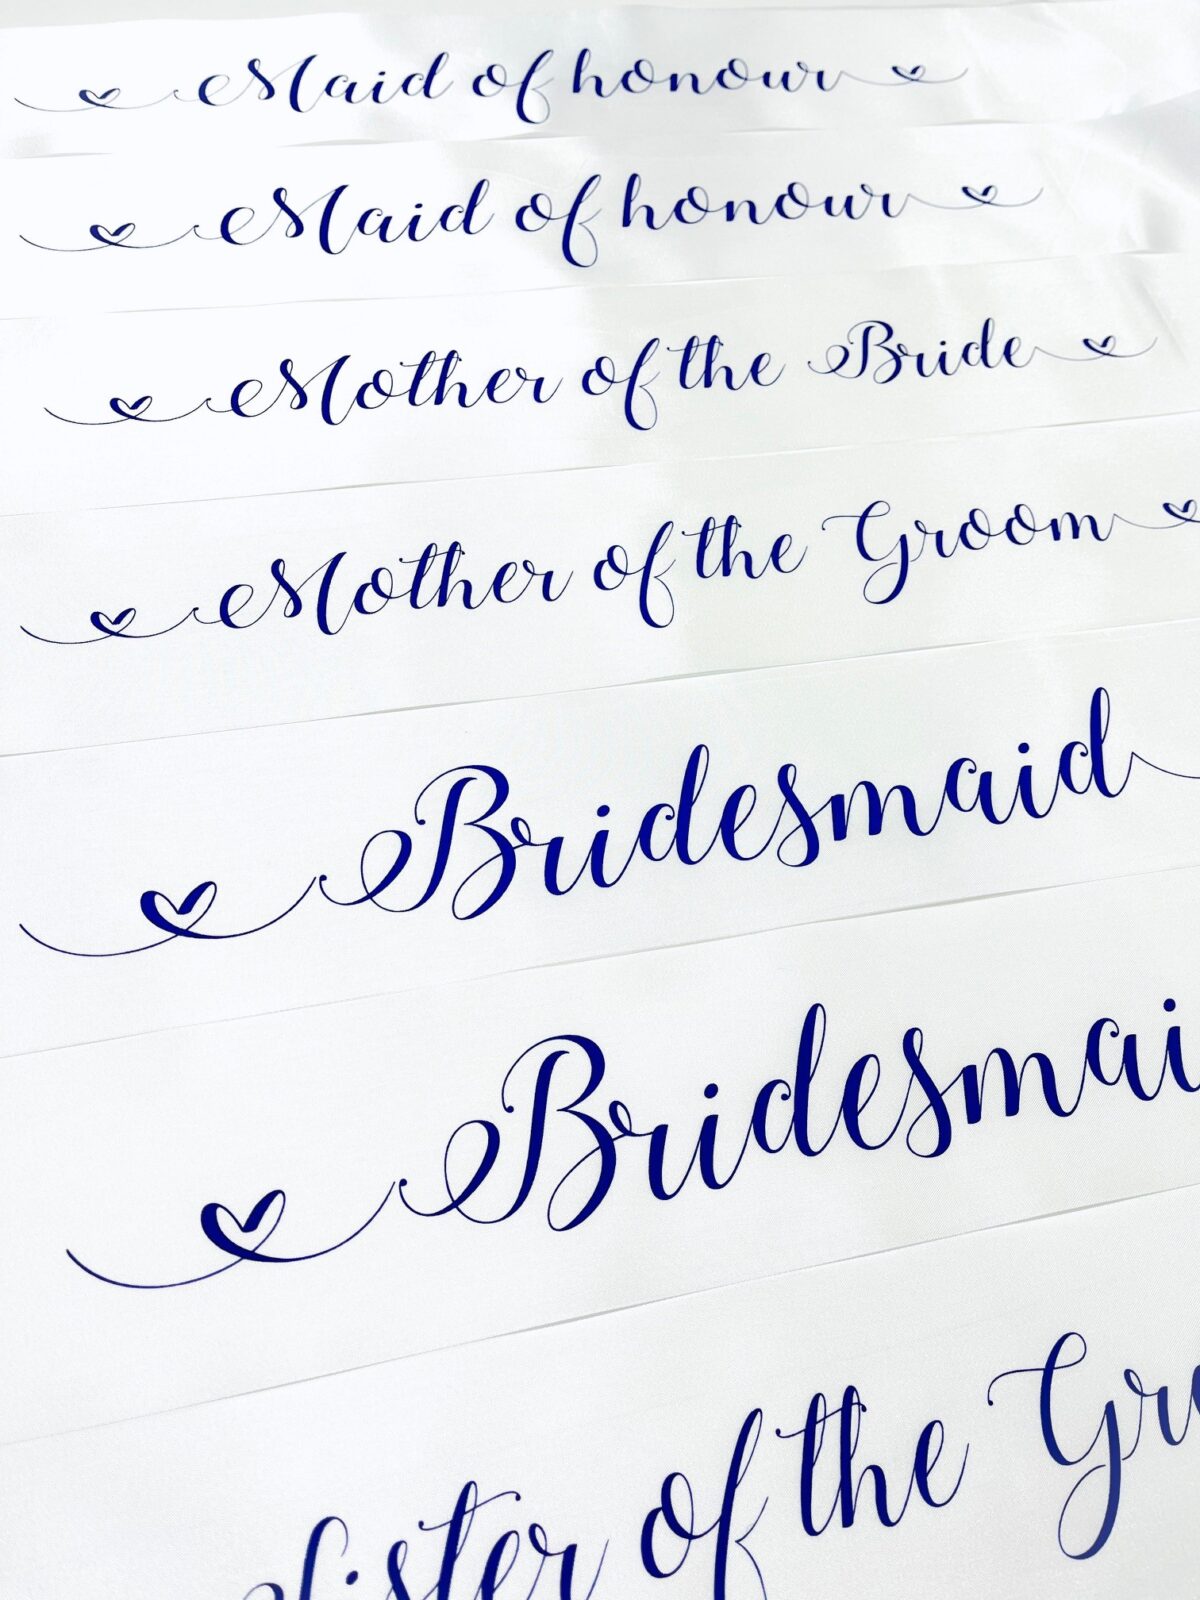 Maid of honour
Maid of honour
Mother of the Bride
Mother of the Groom
Bridesmaid
Bridesmai
Sister of the Gro